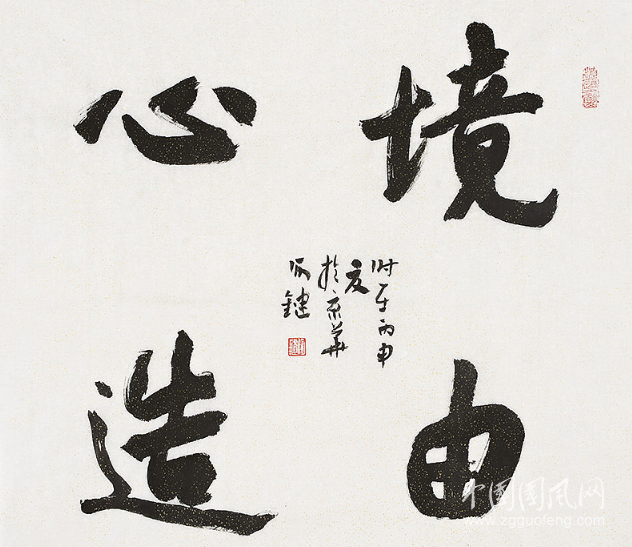 境由
心造
时在丙申
夏
于京华
键
中国国风网
www.zgguofeng.com